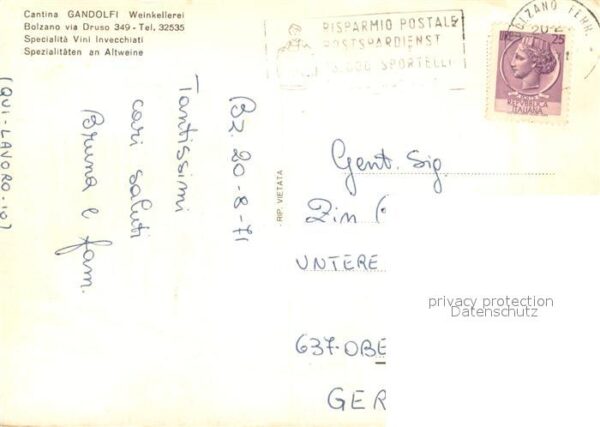 Cantina GANDOLFI Weinkellerei
Bolzano via Druso 349 - Tel. 32535
Specialità Vini Invecchiati
Spezialitäten an Altweine
RISPARMIO POSTALE
POSTSPARDIENST
SPORTELLI
BOLZANO FERR.
LIRE 25
REPUBBLICA
ITALIANA
BZ 20-8-71
Tantissimi
cari saluti
Bruna e fam.
(QUI-LAVORO-IO)
RIP. VIETATA
Gent. Sig.
Zin
UNTERE
637-OBE
GER
privacy protection
Datenschutz